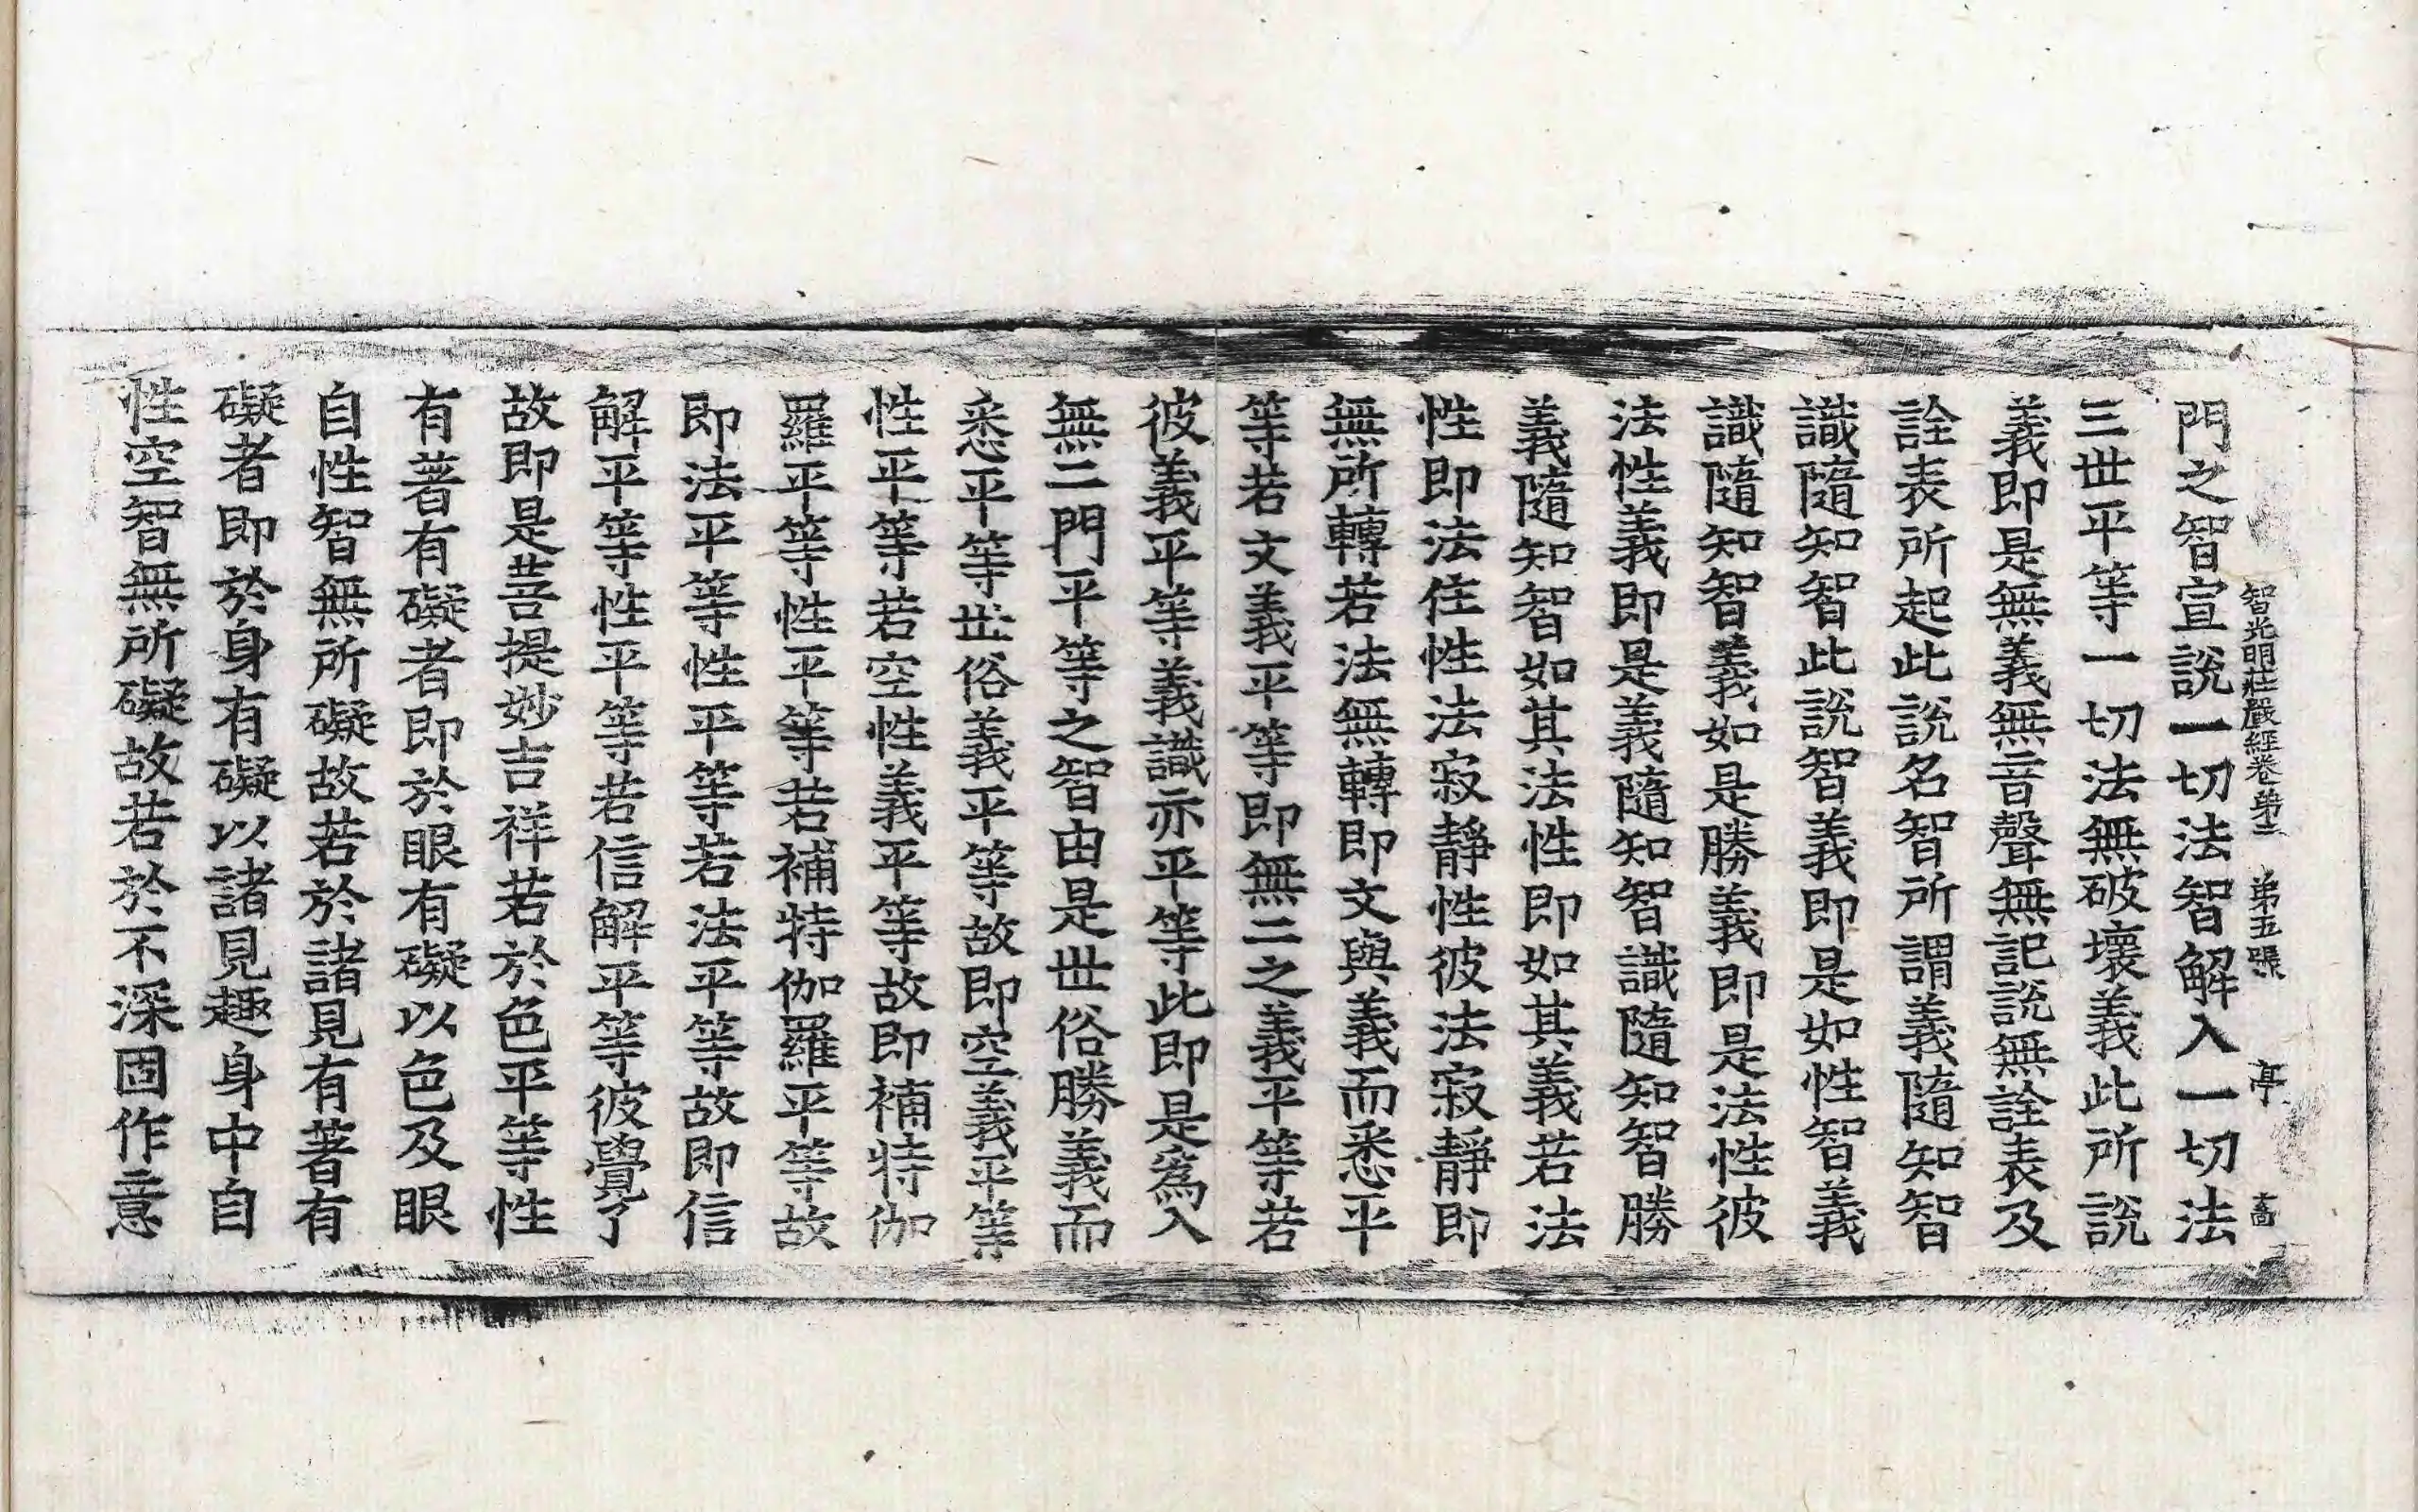 智光明莊嚴經卷第三 第五張 亭 大嵒
門之智宣說一切法智解入一切法
三世平等一切法無破壞義此所說
義即是無義無音聲無記說無詮表及
詮表所起此說名智所謂義隨知智
識隨知智此說智義即是如性智義
識隨知智義如是勝義即是法性彼
法性義即是義隨知智識隨知智勝
義隨知智如其法性即如其義若法
性即法住性法寂靜性彼法寂靜即
無所轉若法無轉即文與義而悉平
等若文義平等即無二之義平等若
彼義平等義識亦平等此即是為入
無二門平等之智由是世俗勝義而
悉平等世俗義平等故即空義平等
性平等若空性義平等故即補特伽
羅平等性平等若補特伽羅平等故
即法平等性平等若法平等故即信
解平等性平等若信解平等彼覺了
故即是菩提妙吉祥若於色平等性
有著有礙者即於眼有礙以色及眼
自性智無所礙故若於諸見有著有
礙者即於身有礙以諸見趣身中自
性空智無所礙故若於不深固作意